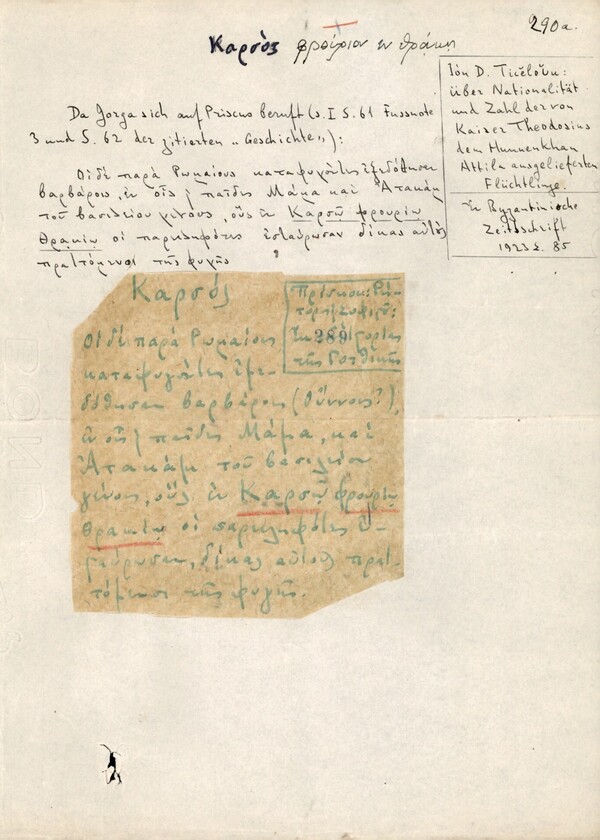 290a.
Καρσὸς φρούριον ἐν Θράκῃ
Ión D. Ticĕlŏiu:
über Nationalität
und Zahl der von
Kaiser Theodosius
dem Hunnenkhan
Attila ausgelieferten
Flüchtlinge.
In Byzantinische
Zeitschrift
1923 S. 85
Da Jorga sich auf Priscus beruft (s. I S. 61 Fussnote
3 und S. 62 der zitierten „Geschichte"):
Οἱ δὲ παρὰ Ῥωμαίους καταφυγόντες ἐξεδόθησαν
βαρβάροις, ἐν οἷς παῖδες Μάμα καὶ Ἀτακὰμ
τοῦ βασιλείου γένους, οὓς ἐν Καρσῷ φρουρίῳ
Θρᾳκίῳ οἱ παρειληφότες ἐσταύρωσαν δίκας αὐτοὺς
πραττόμενοι τῆς φυγῆς
Καρσός
Πρίσκου: Ῥή-
τορος Σοφιστοῦ:
Ἐκ Ἱστορίας
τῆς Γοτθικῆς
289
Οἱ δὲ παρὰ Ῥωμαίοις
καταφυγόντες ἐξε-
δόθησαν βαρβάροις (Οὕννοις?),
ἐν οἷς παῖδες Μάμα, καὶ
Ἀτακὰμ τοῦ βασιλείου
γένους, οὓς ἐν Καρσῷ φρουρίῳ
Θρᾳκίῳ οἱ παρειληφότες ἐ-
σταύρωσαν, δίκας αὐτοὺς πρατ-
τόμενοι τῆς φυγῆς.